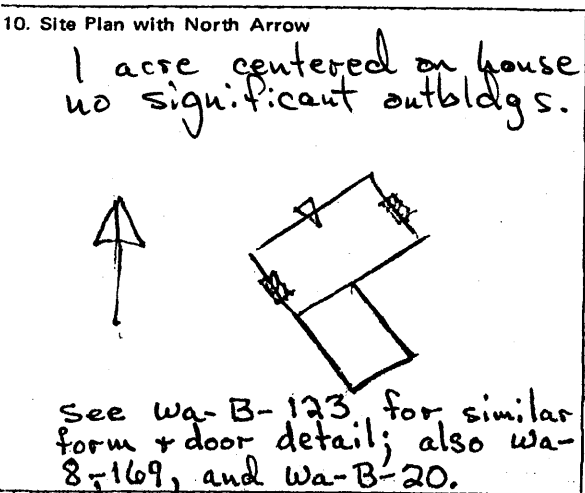 10. Site Plan with North Arrow
1 acre centered on house
no significant outbldgs.
See Wa-B-123 for similar
form + door detail; also Wa-
8-169, and Wa-B-20.